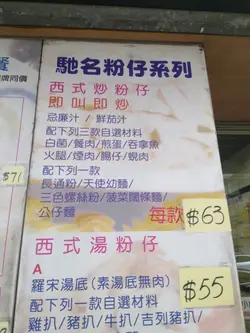 馳名粉仔系列
西式炒粉仔
即叫即炒
忌廉汁 / 鮮茄汁
配下列三款自選材料
白菌/餐肉/煎蛋/吞拿魚
火腿/煙肉/腸仔/蜆肉
配下列一款
長通粉/天使幼麵/
三色螺絲粉/菠菜闊條麵/
公仔麵
每款 $63
西式湯粉仔
A
$55
羅宋湯底(素湯底無肉)
配下列一款自選材料
雞扒/豬扒/牛扒/吉列豬扒/
牌同價
$71